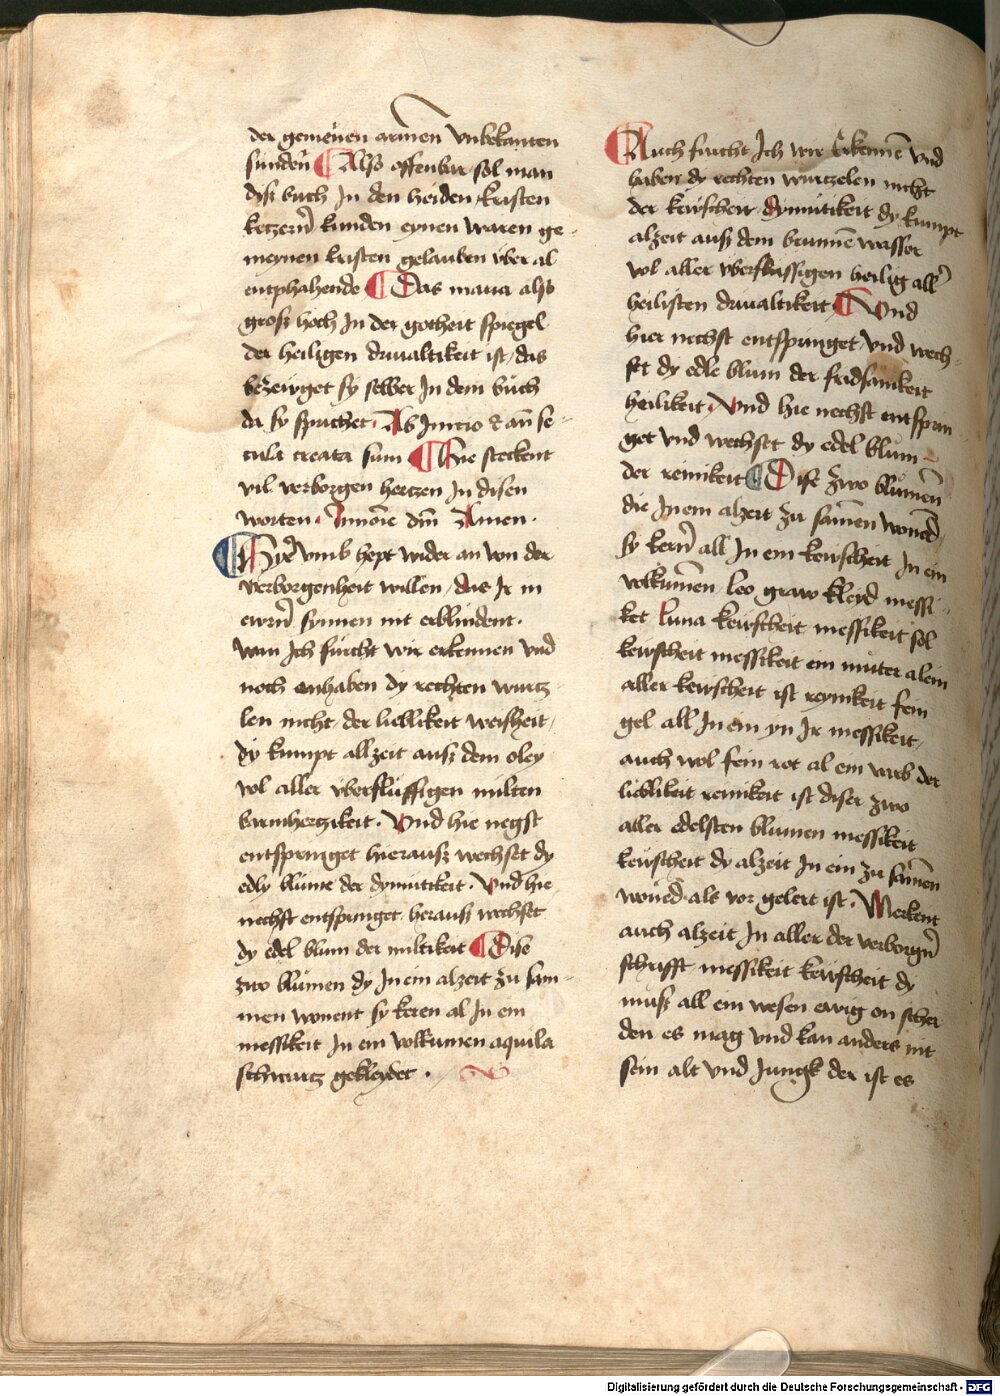 der gemeinen armen vnbekanten
sunden ¶ Also offenbar sol man
dyß buch In den heiden kristen
ketzern kunden eynen waren ge-
meynen kristen gelauben vber al
entphahende ¶ Das maria also
groß hoch In der gotheit spiegel
der heiligen driualtikeit ist / das
bezeuget sy selber In dem buch
da sy sprichet. Ab Inicio & an̄ se-
cula creata sum ¶ Hie steckent
vil verborgen hertzen In disen
worten. Innoīe dnī Amen.
¶ Hye vmb hept wider an von der
verborgenheit willen / das Ir in
ewrn synnen nit erblindent.
wan Ich furcht wir erkennen vnd
noch enhaben dy rechten wurtz
len nicht / der lieblikeit weisheit /
dy kumpt allzeit auß dem oley
vol aller vberflussigen milten
barmhertzikeit. Vnd hie negst
entspringet hierauß wechset dy
edly blume der dymutikeit. Vnd hie
nechst entspringet herauß wechset
dy edel blum der miltikeit ¶ Dise
zwo blumen dy In ein alzeit zu sam-
men wonent sy keren al In ein
messikeit In ein volkumen aquila
schwartz gekleydet.
¶ Auch furcht Ich wir Erkennē vnd
haben dy rechten wurtzelen nicht
der keuscheit dymutikeit dy kumpt
alzeit auß dem brunnē wasser
vol aller vberflussigen heilig all
heilisten driualtikeit ¶ Vnd
hier nechst entspringet vnd wech-
set dy edle blum der fridsamkeit
heilikeit. Vnd hie nechst entsprin
get vnd wechset dy edel blum
der reinikeit ¶ Dise zwo blumen
die In ein alzeit zu samen woned
sy kern all In ein keuscheit In ein
volkumen leo graw kleyd messi-
ket luna keuscheit messikeit sol
keuscheit messikeit ein muter alein
aller keuscheit ist reynikeit sein
gel all In ein yn Ir messikeit /
auch vol sein rot al ein varb der
lieblikeit reinikeit ist diser zwo
aller edelsten blumen messikeit
keuscheit dy alzeit In ein zu samen
woned als vor gelert ist. Merkent
auch alzeit In aller der verborgn
schrifft messikeit keuscheit dy
muß all ein wesen ewig on schei
den es mag vnd kan anders nit
sein alt vnd Jungk der ist es
Digitalisierung gefördert durch die Deutsche Forschungsgemeinschaft - DFG